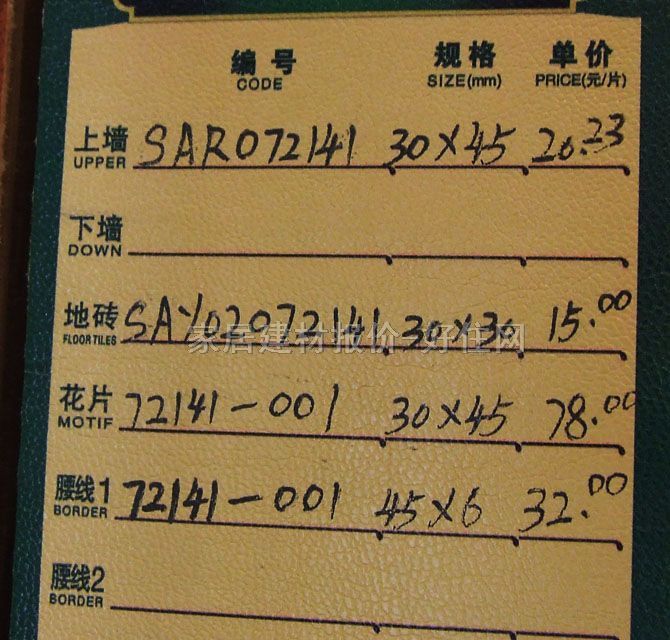 编号 规格 单价
CODE SIZE(mm) PRICE(元/片)
上墙 SAR072141 30×45 20.23
UPPER
下墙
DOWN
地砖 SAY02072141 30×30 15.00
FLOOR TILES
家居建材报价-好住网
花片 72141-001 30×45 78.00
MOTIF
腰线1 72141-001 45×6 32.00
BORDER
腰线2
BORDER